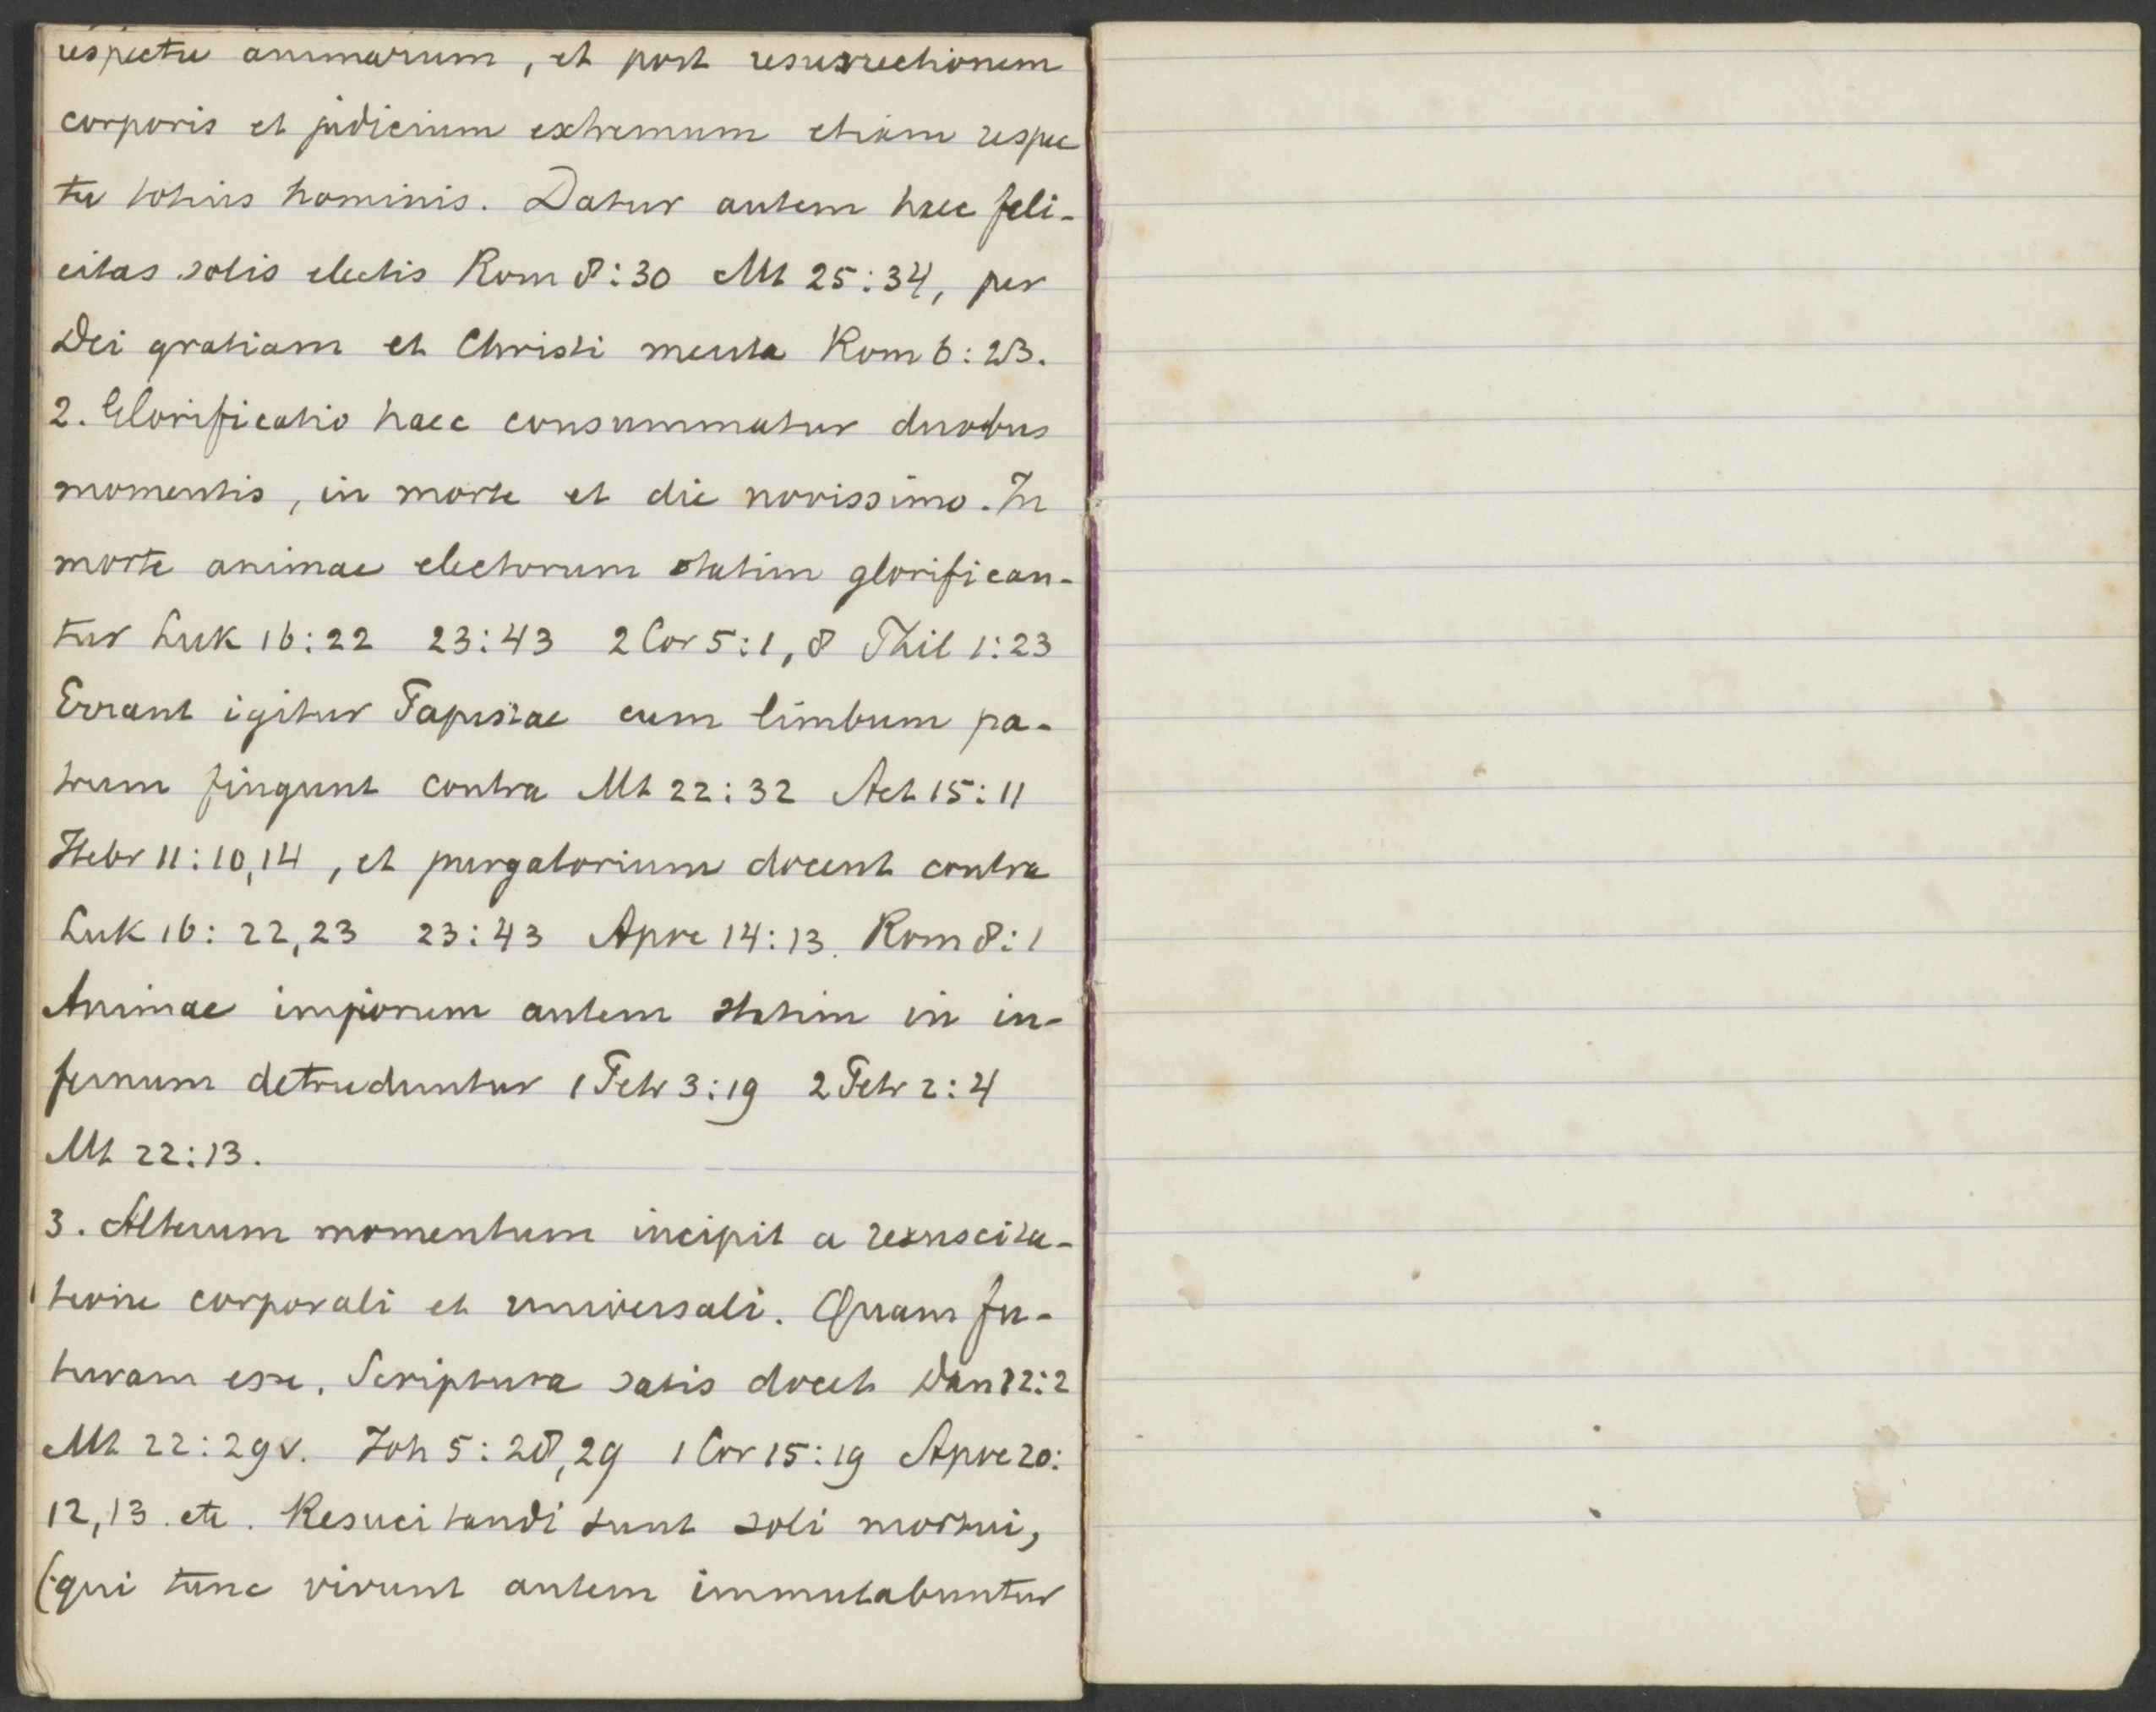 respectu animarum, et post resurrectionem
corporis et judicium extremum etiam respec
tu totius hominis. Datur autem haec feli-
citas solis electis Rom 8:30 Mt 25:34, per
Dei gratiam et Christi merita Rom 6:23.
2. Glorificatio haec consummatur duobus
momentis, in morte et die novissimo. In
morte animae electorum statim glorifican-
tur Luk 16:22 23:43 2 Cor 5:1, 8 Phil 1:23
Errant igitur Papistae cum limbum pa-
trum fingunt contra Mt 22:32 Act 15:11
Hebr 11:10,14, et purgatorium docent contra
Luk 16: 22,23 23:43 Apoc 14:13. Rom 8:1
Animae impiorum autem statim in in-
fernum detruduntur 1 Petr 3:19 2 Petr 2:4
Mt 22:13.
3. Alterum momentum incipit a resuscita-
tione corporali et universali. Quam fu-
turam esse, Scriptura satis docet Dan 12:2
Mt 22:29v. Joh 5:28,29 1 Cor 15:19 Apoc 20:
12,13. etc. Resucitandi sunt soli mortui,
(qui tunc vivunt autem immutabuntur